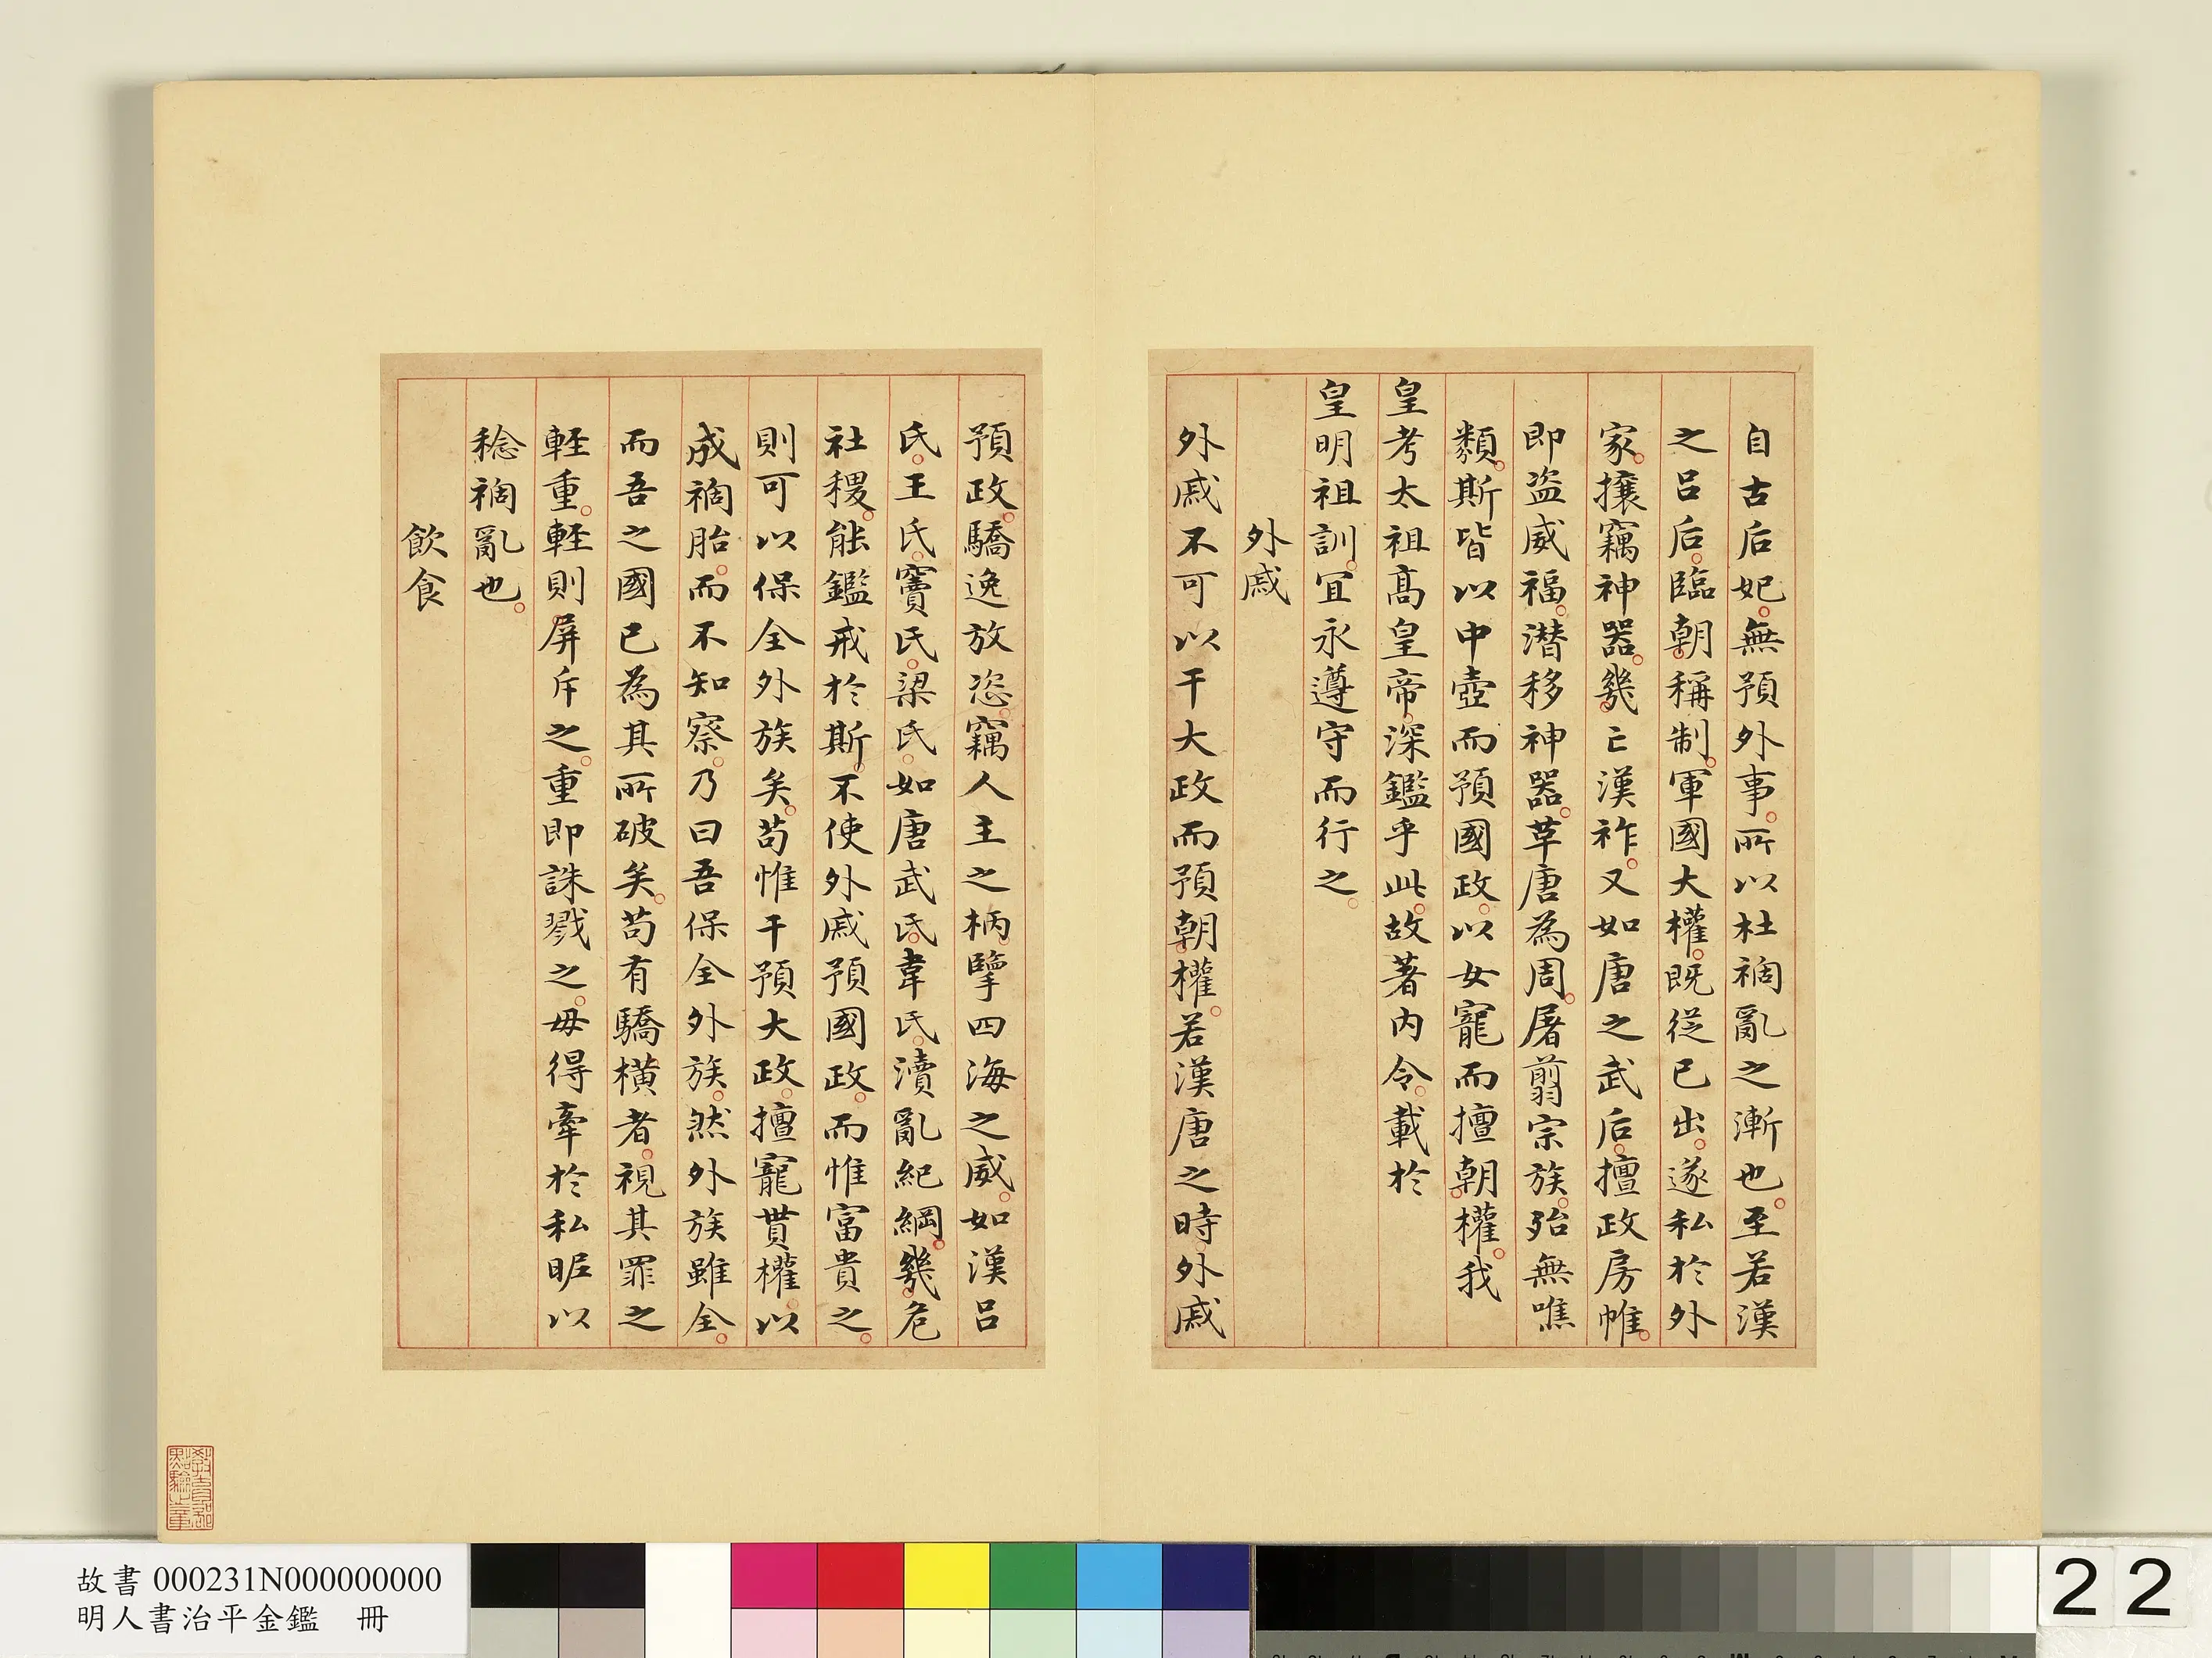 自古后妃無預外事所以杜禍亂之漸也至若漢
之呂后臨朝稱制軍國大權既從已出遂私於外
家攘竊神器幾亡漢祚又如唐之武后擅政房帷
即盗威福潜移神器革唐為周屠翦宗族殆無噍
類斯皆以中壼而預國政以女寵而擅朝權我
皇考太祖髙皇帝深鑑乎此故著内令載於
皇明祖訓冝永遵守而行之
外戚
外戚不可以干大政而預朝權若漢唐之時外戚
預政驕逸放恣竊人主之柄擥四海之威如漢呂
氏王氏竇氏梁氏如唐武氏韋氏瀆亂紀綱幾危
社稷能鑑戒於斯不使外戚預國政而惟富貴之
則可以保全外族矣苟惟干預大政擅寵貰權以
成禍胎而不知察乃曰吾保全外族然外族雖全
而吾之國已為其所破矣苟有驕横者視其罪之
輕重輕則屏斥之重即誅戮之毋得牽於私昵以
稔禍亂也
飲食
故書 000231N000000000
明人書治平金鑑 冊
22